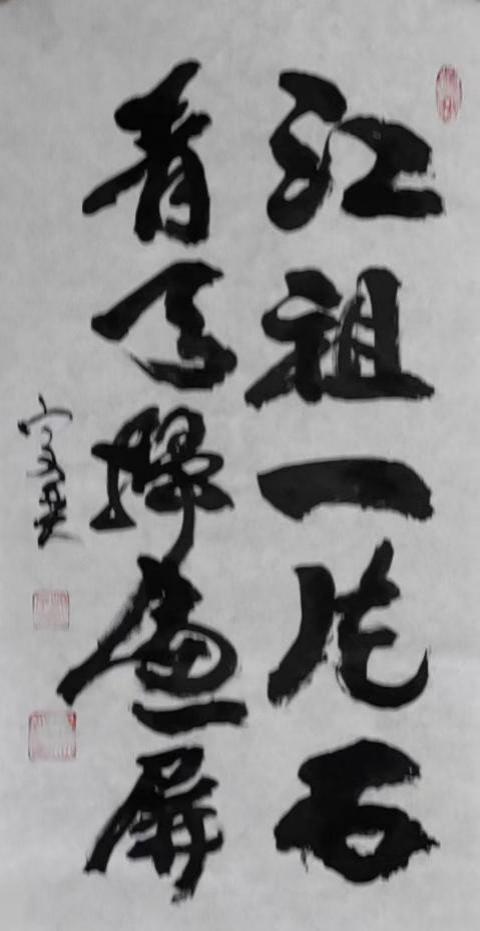 江祖一片石
青天掃畫屏